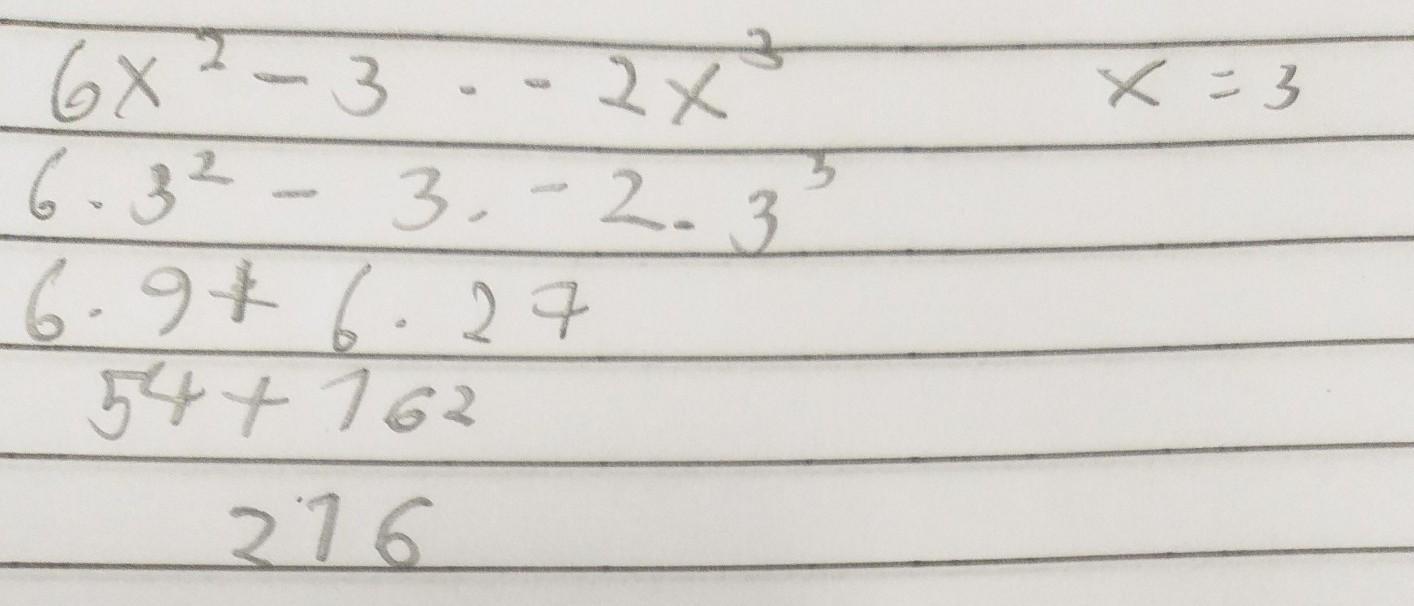 6x² - 3 · - 2x³ x = 3
6 · 3² - 3 · - 2 · 3³
6 · 9 + 6 · 27
54 + 162
216